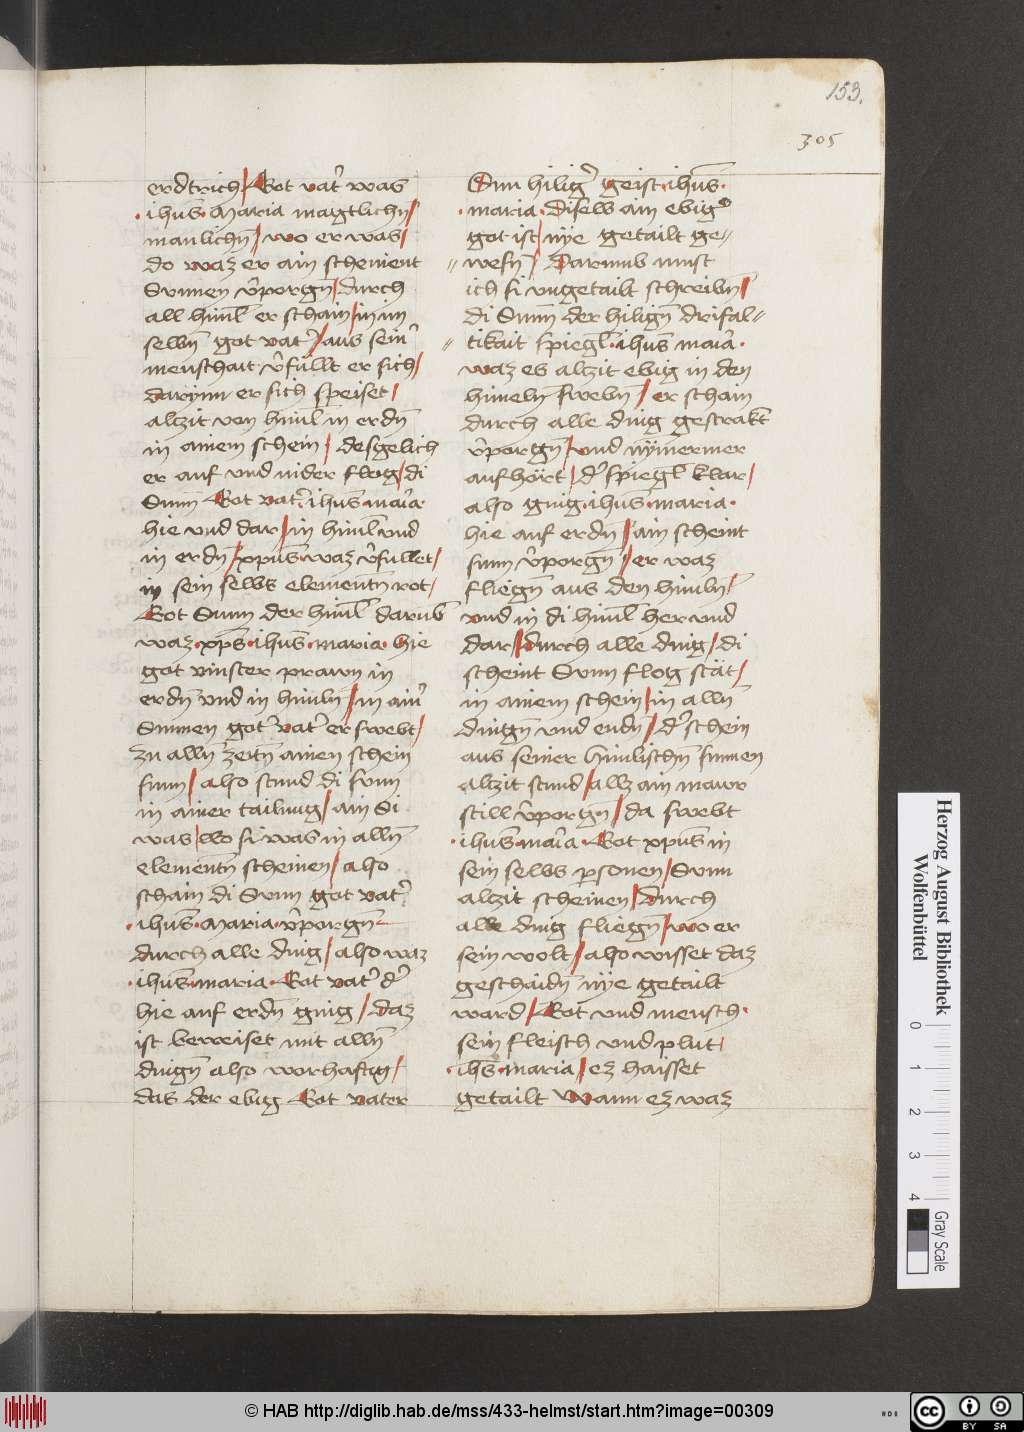 153.
305
erdtrich / Got vat̉ was
· ihus̄ · Maria magtlichn̄ /
manlichn̄ / wo er was /
do waz er ain schenient
Sunnen v̉porgn̄ / durch
all himl̄ er schain / in im
selbn̄ got vat̉ / aus sein̉
menschait v̉fúllt er sich /
darynn er sich speiset /
alczit von himl̄ in erdn̄
in ainem schein / desgelich
er auf vnd nider flog / di
Sunn̄ Got vat̉ · ihus̄ · mar̄ia
hie vnd dar / in himl̄ vnd
in erdn̄ / xpūs waz v̉fullet /
in sein selbs elementn̄ rot /
Got Sunn der himl̄ darub̄
waz · xp̄s · ihus̄ · maria · hie
got vinster prawn in
erdn̄ vnd in himln̄ / in ain̉
Sunnen got vat̉ er swebt /
zu alln̄ zeitn̄ ainen schein
sunn / also stund di sunn
in ainer tailung / ain Si
was / wo si was in alln̄
elementn̄ scheinen / also
schain di Sunn got vat̉
· ihus̄ · Maria · v̉porgn̄
durch alle ding / also waz
· ihus̄ · maria · Got vat̉ d̉
hie auf erdn̄ ging / daz
ist beweiset mit alln̄
dingn̄ also worhaftig /
das der ebig Got vater
Sun hilig̉ geist · ihus̄ ·
· maria · diselb ain ebig̉
got ist / nye getailt ge〃
〃 wesn̄ / Darumb must
ich si vngetailt schreibn̄ /
di Sunn̄ der hilign̄ drifal〃
〃 tikait spiegl̄ · ihus̄ mar̄ia ·
waz es alczit ebig in den
himeln̄ swebn̄ / er schain
durch alle ding gestrakt
v̉porgn̄ / vnd nÿmermer
aufhört / d̉ spiegl̄ klar /
also ging · ihus̄ · maria ·
hie auf erdn̄ / ain scheint
sunn v̉porgn̄ / er waz
fliegn̄ aus den himln̄ /
vnd in di himl̄ her vnd
dar / durch alle ding / di
scheint Sunn flog stät /
in ainem schein / in alln̄
dingn̄ vnd endn̄ / d̉ schein
aus seiner himlischn̄ sunnen
alczit stund / allz ain mawr
still v̉porgn̄ / da swebt
· ihus̄ · mar̄ia · Got xpūs in
sein selbs personen / Sunn
alczit scheinen / durch
alle ding fliegn̄ / wo er
sein wolt / also wisset daz
geschaidn̄ nÿe getailt
ward / Got vnd mensch ·
sein fleisch vnd plut /
· ihs̄ · maria / ez haisset
getailt Wann ez waz
Herzog August Bibliothek
Wolfenbüttel
0 1 2 3 4
Gray Scale
© HAB http://diglib.hab.de/mss/433-helmst/start.htm?image=00309
HAB
cc BY SA